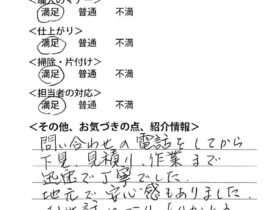 <職人のマナー>
満足 普通 不満
<仕上がり>
満足 普通 不満
<掃除・片付け>
満足 普通 不満
<担当者の対応>
満足 普通 不満
<その他、お気づきの点、紹介情報>
問い合わせの電話をしてから
下見、見積り、作業まで
迅速で丁寧でした。
地元で安心感もありました。